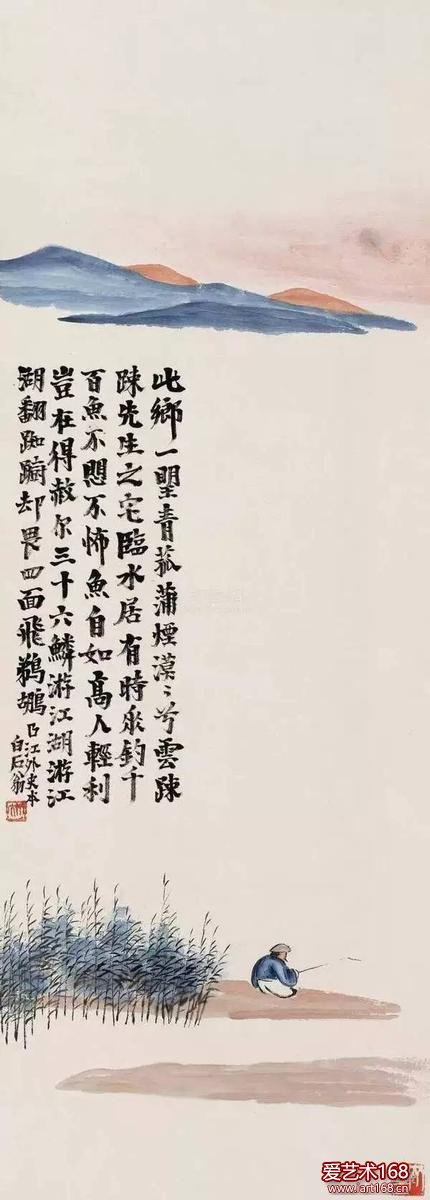 此鄉一望青菰蒲煙漠〻兮雲踈
踈先生之宅臨水居有時垂釣千
百魚不愳不怖魚自如高人輕利
豈在得赦尔三十六鱗游江湖游江
湖翻踟躕却畏四面飛鵜鶘
曲江外史本
白石翁
爱艺术168
www.art168.cn